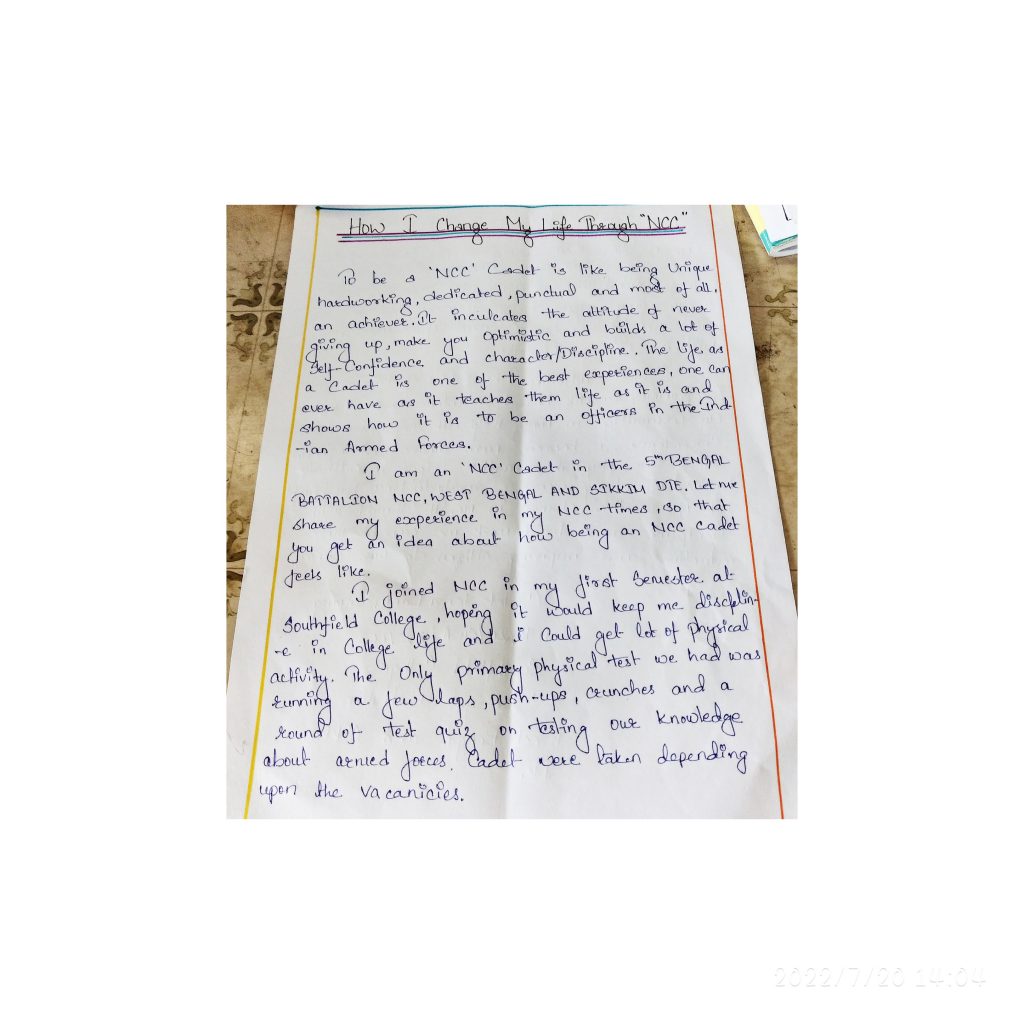 How I Change My Life Through "NCC"
To be a 'NCC' Cadet is like being Unique
hardworking, dedicated, punctual and most of all,
an achiever. It inculcates the attitude of never
giving up, make you Optimistic and builds a lot of
Self-Confidence and character/Discipline. The life as
a Cadet is one of the best experiences, one can
ever have as it teaches them life as it is and
shows how it is to be an officers in the Ind-
-ian Armed Forces.
I am an 'NCC' Cadet in the 5th BENGAL
BATTALION NCC, WEST BENGAL AND SIKKIM DTE. Let me
share my experience in my NCC times, so that
you get an idea about how being an NCC cadet
feels like.
I joined NCC in my first Semester at
Southfield College, hoping it would keep me discplin-
-e in College life and i Could get lot of Physical
activity. The Only primary physical test we had was
running a few laps, push-ups, crunches and a
round of test quiz on testing our knowledge
about armed forces. Cadet were taken depending
upon the vacanicies.
2022/7/20 14:04